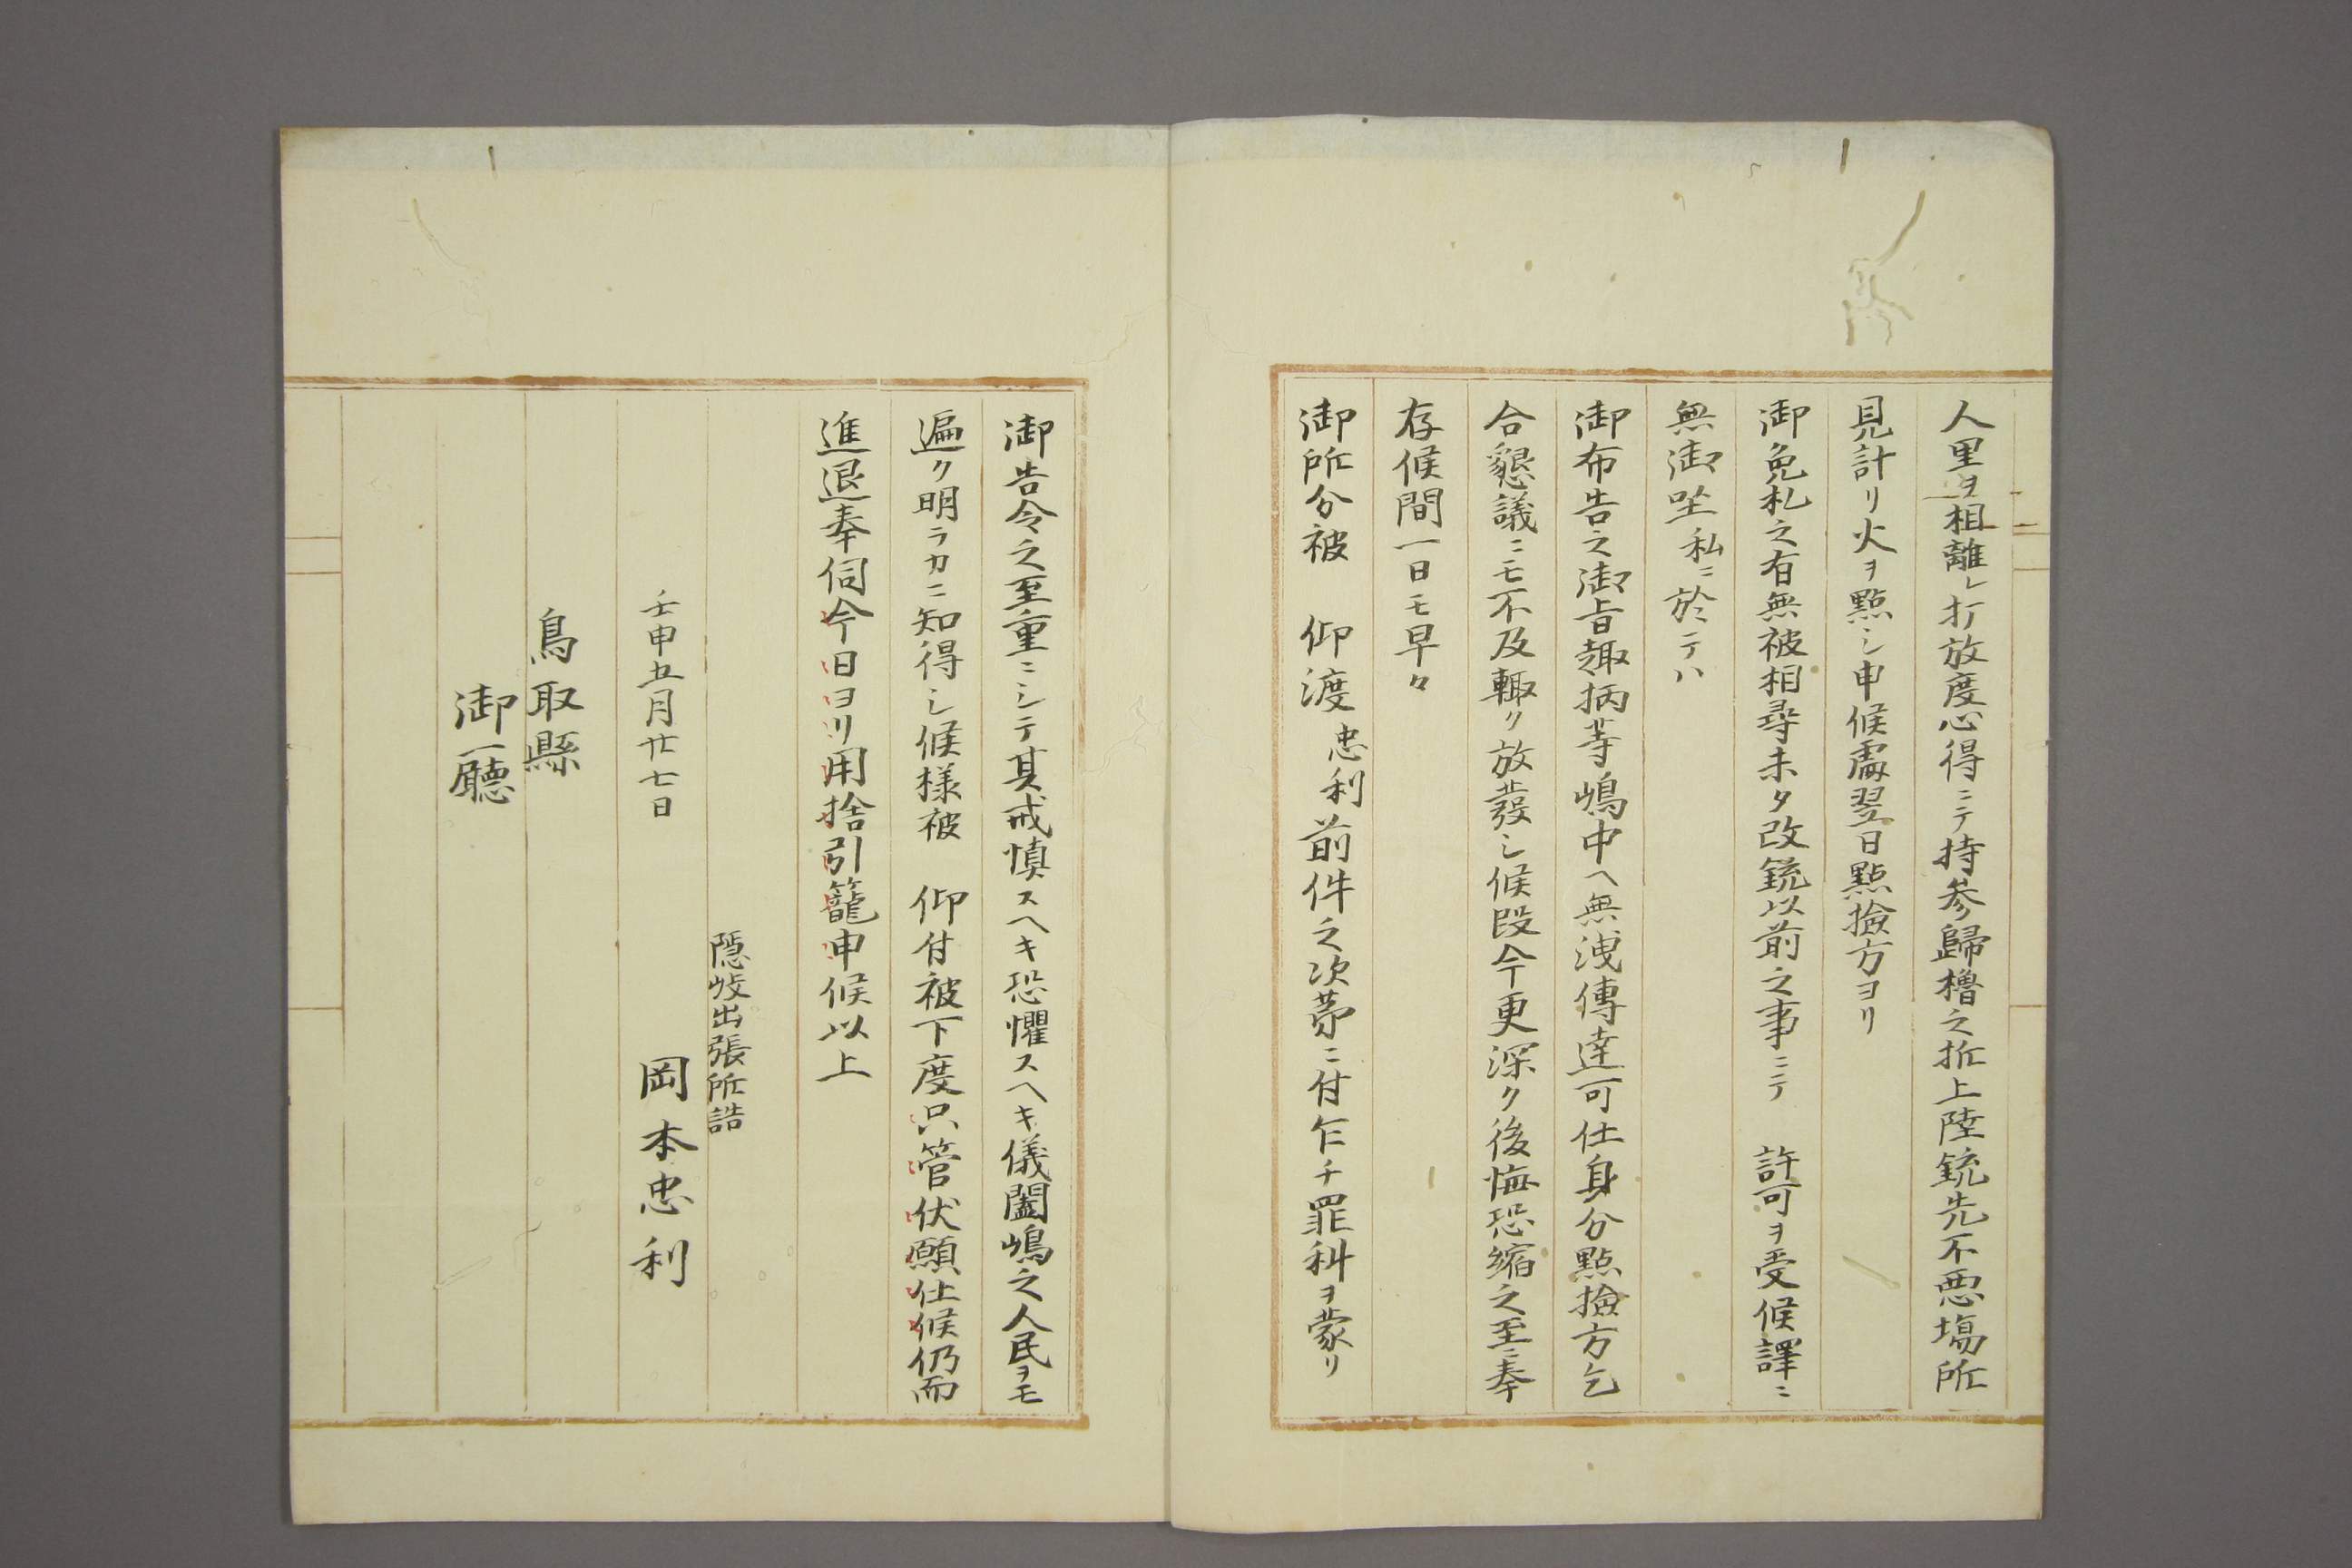 人里ヲ相離レ打放度心得ニテ持参歸櫓之折上陸銃先不悪場所
見計リ火ヲ點シ申候處翌日點撿方ヨリ
御免札之有無被相尋未タ改銃以前之事ニテ　許可ヲ受候譯ニ
無御坐私ニ於テハ
御布告之御旨趣柄等嶋中ヘ無洩傳達可仕身分點撿方乞
合懇議ニモ不及輙ク放發シ候段今更深ク後悔恐縮之至ニ奉
存候間一日モ早々
御所分被　仰渡忠利前件之次第ニ付乍チ罪科ヲ蒙リ
御告令之至重ニシテ其戒慎スヘキ恐懼スヘキ儀闔嶋之人民ヲモ
遍ク明ラカニ知得シ候様被　仰付被下度只管伏願仕候仍而
進退奉伺今日ヨリ用捨引籠申候以上
隠岐出張所詰
岡本忠利
壬申五月廿七日
鳥取縣
御廳